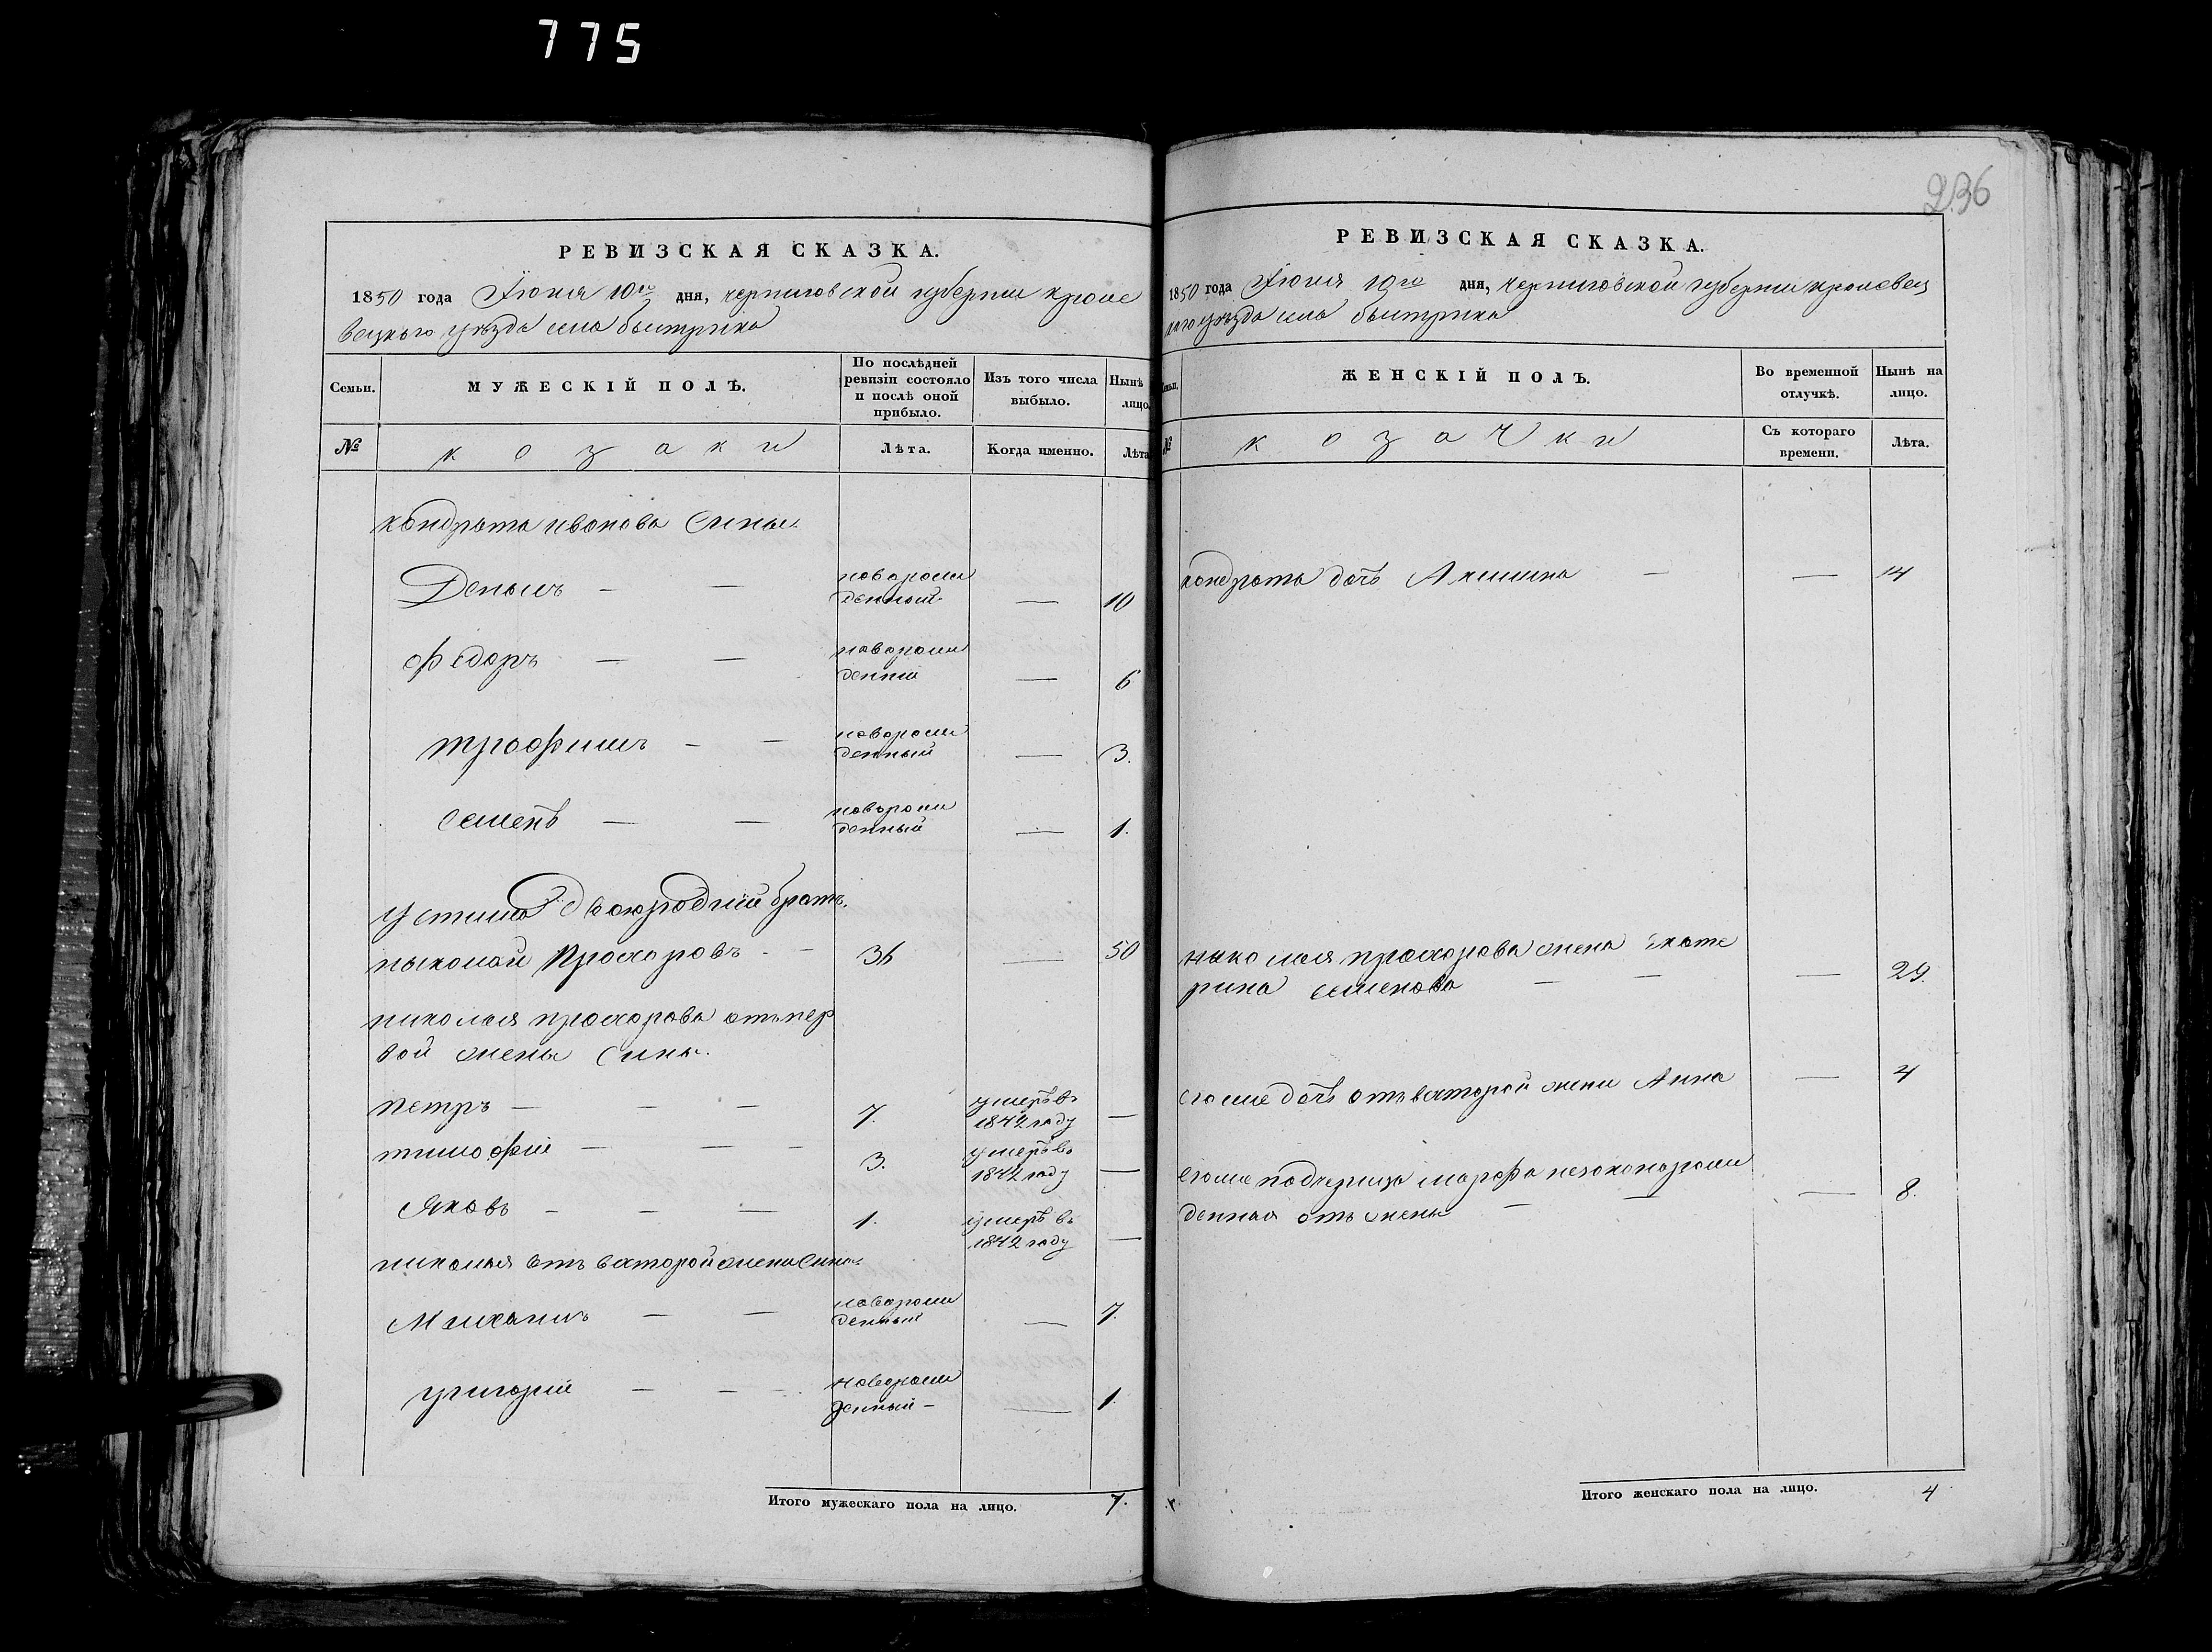 775
РЕВИЗСКАЯ СКАЗКА.
1850 года Июня 10го дня, черниговской губернии кроле
вецкого уезда села быстрика
Семьи. МУЖЕСКІЙ ПОЛЪ. По послѣдней ревизіи состояло и послѣ оной прибыло. Изъ того числа выбыло. Нынѣ лицо.
№ козаки Лѣта. Когда именно. Лѣта
кондрата иванова сины
Денысъ — — новорожденный — 10
Федоръ — — новорожденний — 6
трофимъ — — новорожденный — 3.
семенъ — — новорожденный — 1.
Устина двоюродний братъ.
ныколай Прохоровъ - - 36 — 50
николая прохорова отъ пер
вой жены сины.
петръ — — — 7. умеръ въ 1842 году —
тимофiй — — — 3. умеръ въ 1842 году —
Яковъ — — — 1. умеръ въ 1842 году —
николая отъ второй жени сины
Михаилъ — — новорожденный — 7.
григорiй — — — новорожденный — — 1.
Итого мужескаго пола на лицо. 7.
236
РЕВИЗСКАЯ СКАЗКА.
1850 года Июня 10го дня, черниговской губернии кролевец
каго уезда села быстрика
Семьи. ЖЕНСКІЙ ПОЛЪ. Во временной отлучкѣ. Нынѣ на лицо.
№ козачки Съ котораго времени. Лѣта.
кондрата дочь Акилина — — 14
николая прохорова жена Екате
рина семенова — — 29.
его же дочь отъ второй жени Анна — 4
его же падчерица марфа незаконорож
денная отъ жены — — — 8.
Итого женскаго пола на лицо. 4